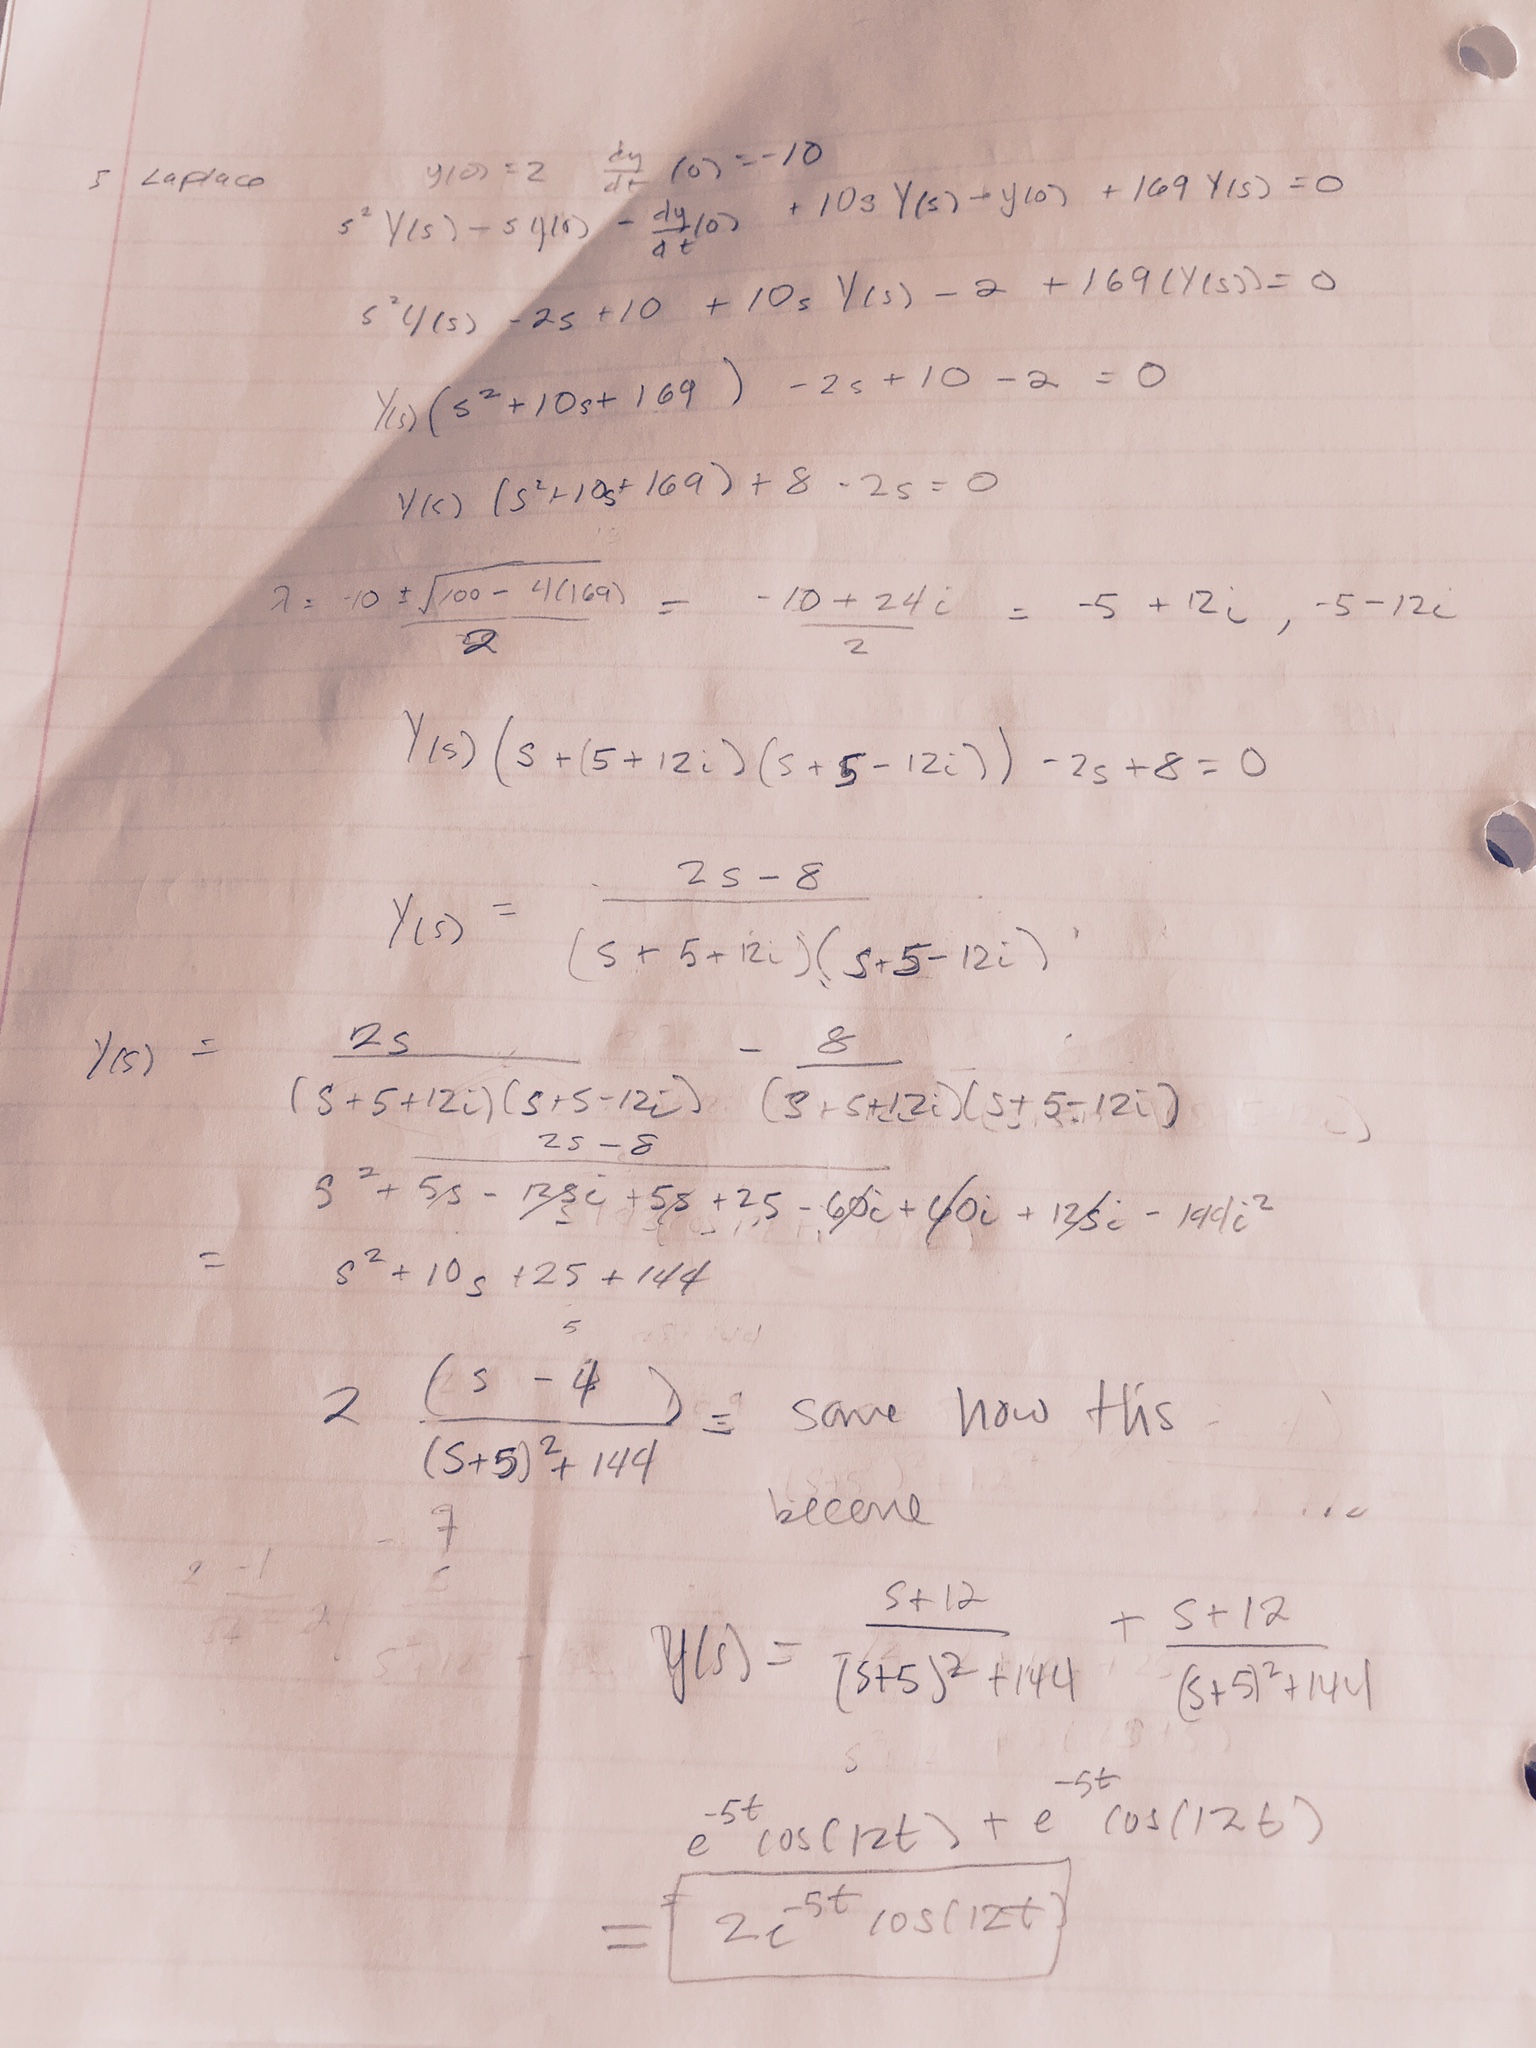 5 Laplace y(0) = 2 dy/dt (0) = -10
s² Y(s) - s y(0) - dy/dt(0) + 10s Y(s) - y(0) + 169 Y(s) = 0
s² Y(s) - 2s + 10 + 10s Y(s) - 2 + 169(Y(s)) = 0
Y(s) (s² + 10s + 169) - 2s + 10 - 2 = 0
Y(s) (s² + 10s + 169) + 8 - 2s = 0
λ = -10 ± √100 - 4(169) / 2 = -10 + 24i / 2 = -5 + 12i , -5 - 12i
Y(s) (s + (5 + 12i) (s + 5 - 12i)) - 2s + 8 = 0
Y(s) = 2s - 8 / (s + 5 + 12i)(s + 5 - 12i)
Y(s) = 2s / (s + 5 + 12i)(s + 5 - 12i) - 8 / (s + 5 + 12i)(s + 5 - 12i)
2s - 8
s² + 5s - 12si + 5s + 25 - 60i + 60i + 12si - 144i²
= s² + 10s + 25 + 144
2 (s - 4) / (s+5)² + 144 = some how this
become ...
Y(s) = s + 12 / (s+5)² + 144 + s + 12 / (s+5)² + 144
e^-5t cos(12t) + e^-5t cos(12t)
= 2e^-5t cos(12t)